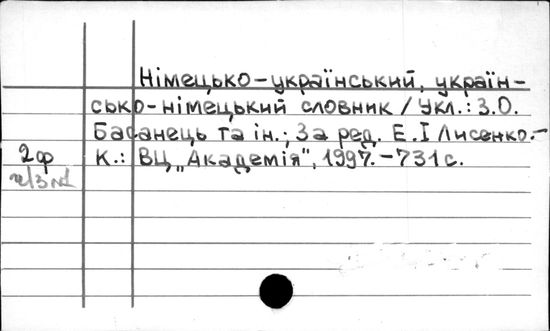 Німецько-український, україн-
сько-німецький словник / Укл.: З.О.
Басанець та ін.; За ред. Е.І Лисенко.-
2ф К.: ВЦ „Академія", 1997.-731с.